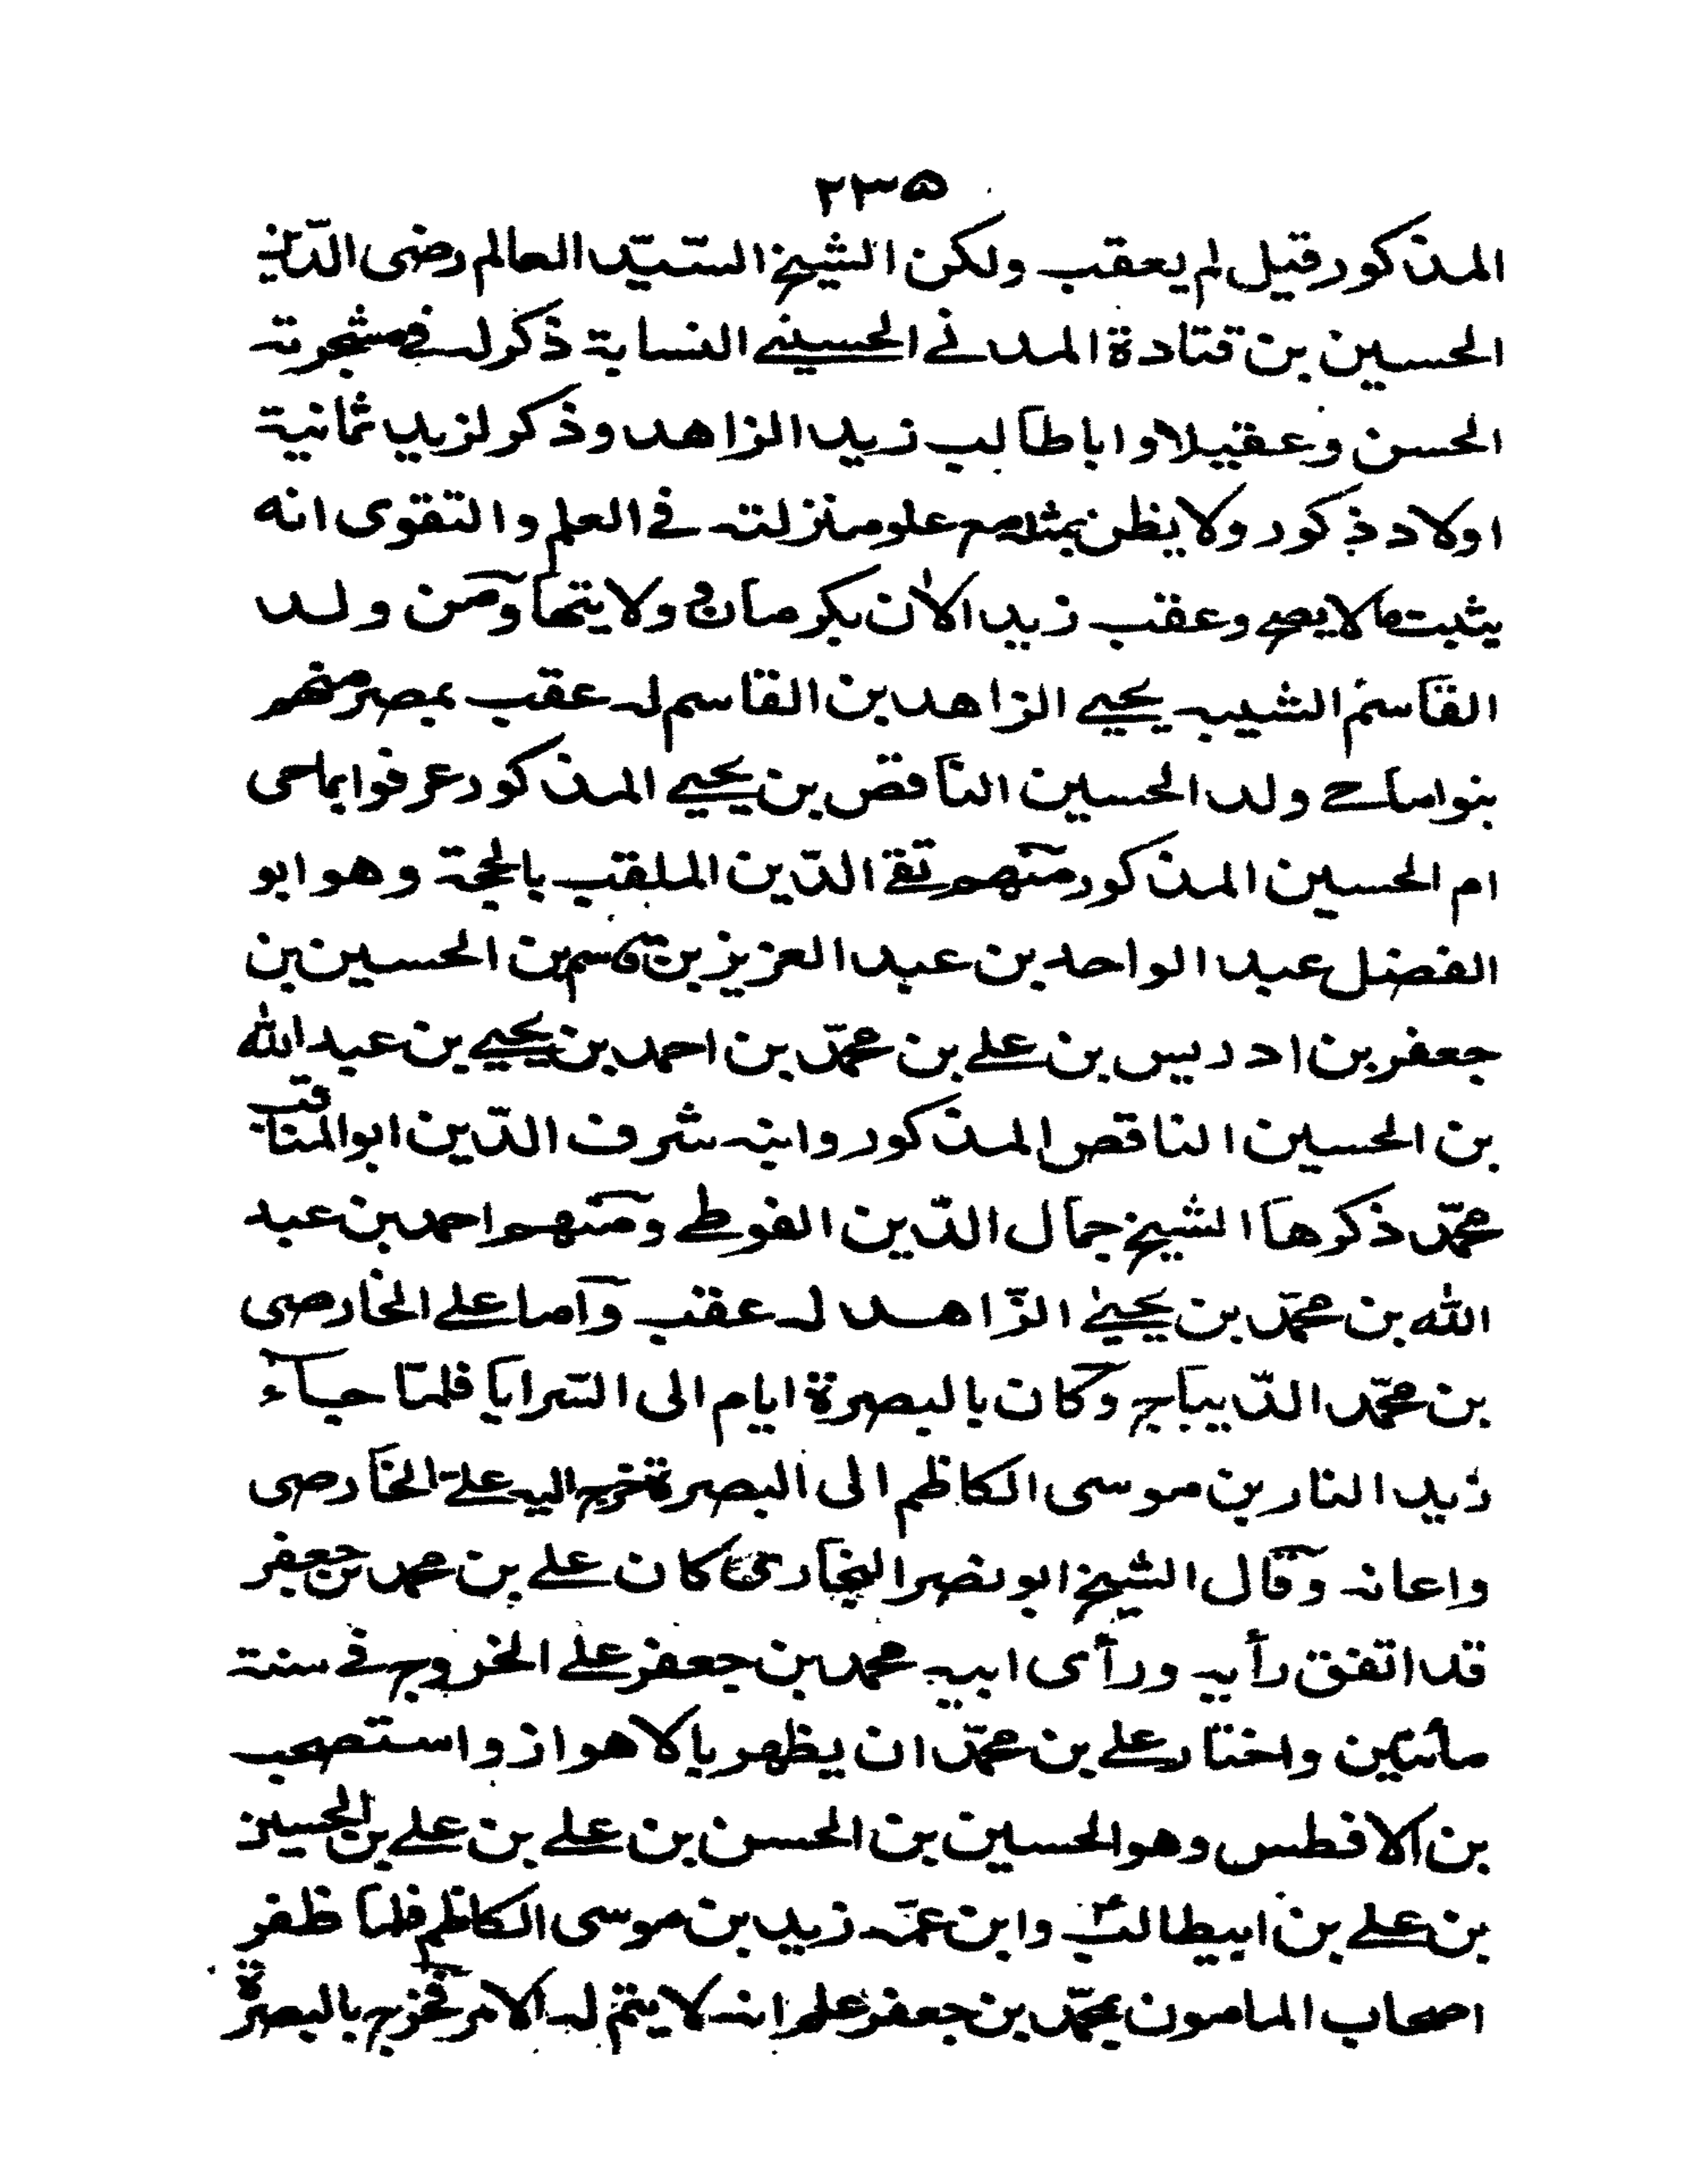 ٢٣٥
المذكور قيل لم يعقب ولكن الشيخ السّيّد العالم رضى الدّين
الحسين بن قتادة المدنے الحسينے النسابة ذكر له فے مشجرته
الحسن وعقيلا وابا طالب زيد الزاهد وذكر لزيد ثمانية
اولاد ذكور ولا يظن بمثله مع علو منزلته فے العلم والتقوى انه
يثبت ما لا يصح وعقب زيد الاٰن بكرمان وولايتها ومن ولد
القاسم الشبيه يحيے الزاهد بن القاسم له عقب بمصر منهم
بنو اماحے ولد الحسين الناقص بن يحيے المذكور عرفوا بماحى
ام الحسين المذكور منهم تقے الدّين الملقب بالحجة وهو ابو
الفضل عبد الواحد بن عبد العزيز بن قاسم بن الحسين بن
جعفر بن ادريس بن علے بن محمّد بن احمد بن يحيے بن عبد الله
بن الحسين الناقص المذكور وابنه شرف الدّين ابو المناقب
محمّد ذكرها الشيخ جمال الدّين الفوطے ومنهم احمد بن عبد
الله بن محمّد بن يحيٰے الزّاهد له عقب وآما علے الخارصى
بن محمّد الدّيباج وكان بالبصرة ايام الى السّرايا فلمّا جاء
زيد النار بن موسى الكاظم الى البصرة خرج اليه علے الخارصى
واعانه وقال الشيخ ابو نصر البخارى كان علے بن محمد بن جعفر
قد اتفق رأيه ورأى ابيه محمد بن جعفر علے الخروج فے سنة
مأتين واختار علے بن محمّد ان يظهر بالاهواز واستصحب
بن الافطس وهو الحسين بن الحسن بن علے بن علے بن الحسين
بن علے بن ابيطالبؑ وابن عمّه زيد بن موسى الكاظم فلمّا ظفر
اصحاب المامون بمحمّد بن جعفر علم انه لا يتم له الامر فخرج بالبصرة